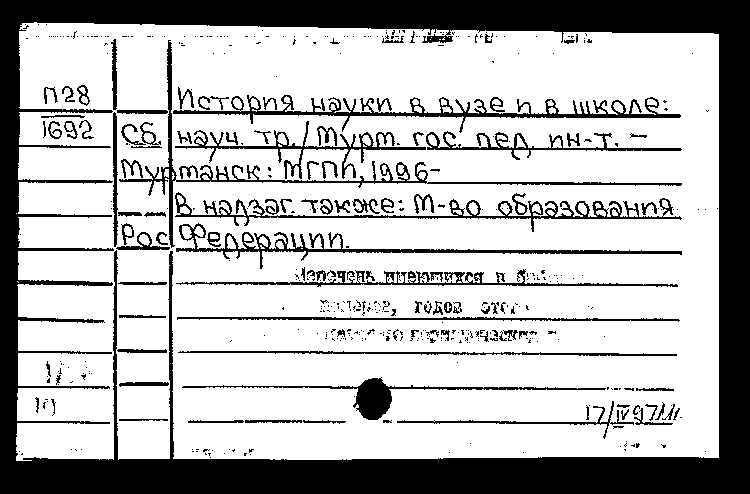 П28
1692
История науки в вузе и в школе:
Сб. науч. тр./Мурм. гос. пед. ин-т. –
Мурманск: МГПИ, 1996-
В надзаг. также: М-во образования
Рос. Федерации.
Перечень имеющихся в
номеров, годов этого
17/IV 97